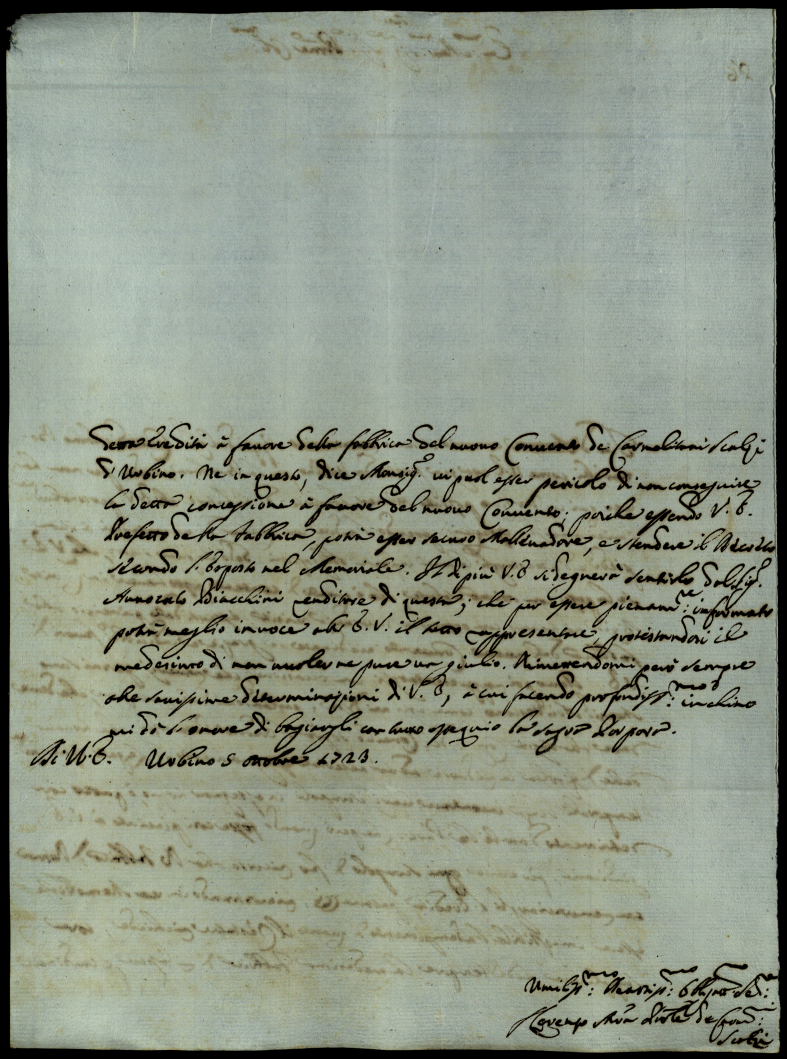 detta Eredità à favore della fabbrica del nuovo Convento de Carmelitani Scalzi
d'Urbino. Ne in questo, dice Monsig.r vi puol esser pericolo di non conseguire
la detta concessione à favore del nuovo Convento; poiche essendo V. E.
Prefetto della fabbrica, potrà esser sicuro Mallevadore, e stendere il
secondo l'esposto nel Memoriale. Di più V. E. si degnerà sentirlo dal Sig.r
Avvocato Bianchini venditore di questa; che per essere pienam.te informato
potrà meglio in voce all' E. V. il tutto rappresentare, protestandosi il
medesimo di non voler ne pure un giulio. Rimettendomi però sempre
alle savissime determinazioni di V. E., à cui facendo profondiss.mo inchino
mi dò l'onore di bagiargli con tutto ossequio la Sagra Porpora.
Di V. E. Urbino 5 ottobre 1723.
Umiliss.mo Devotiss.mo Obligat.mo Se.re
Lorenzo M.a de
Scalzi